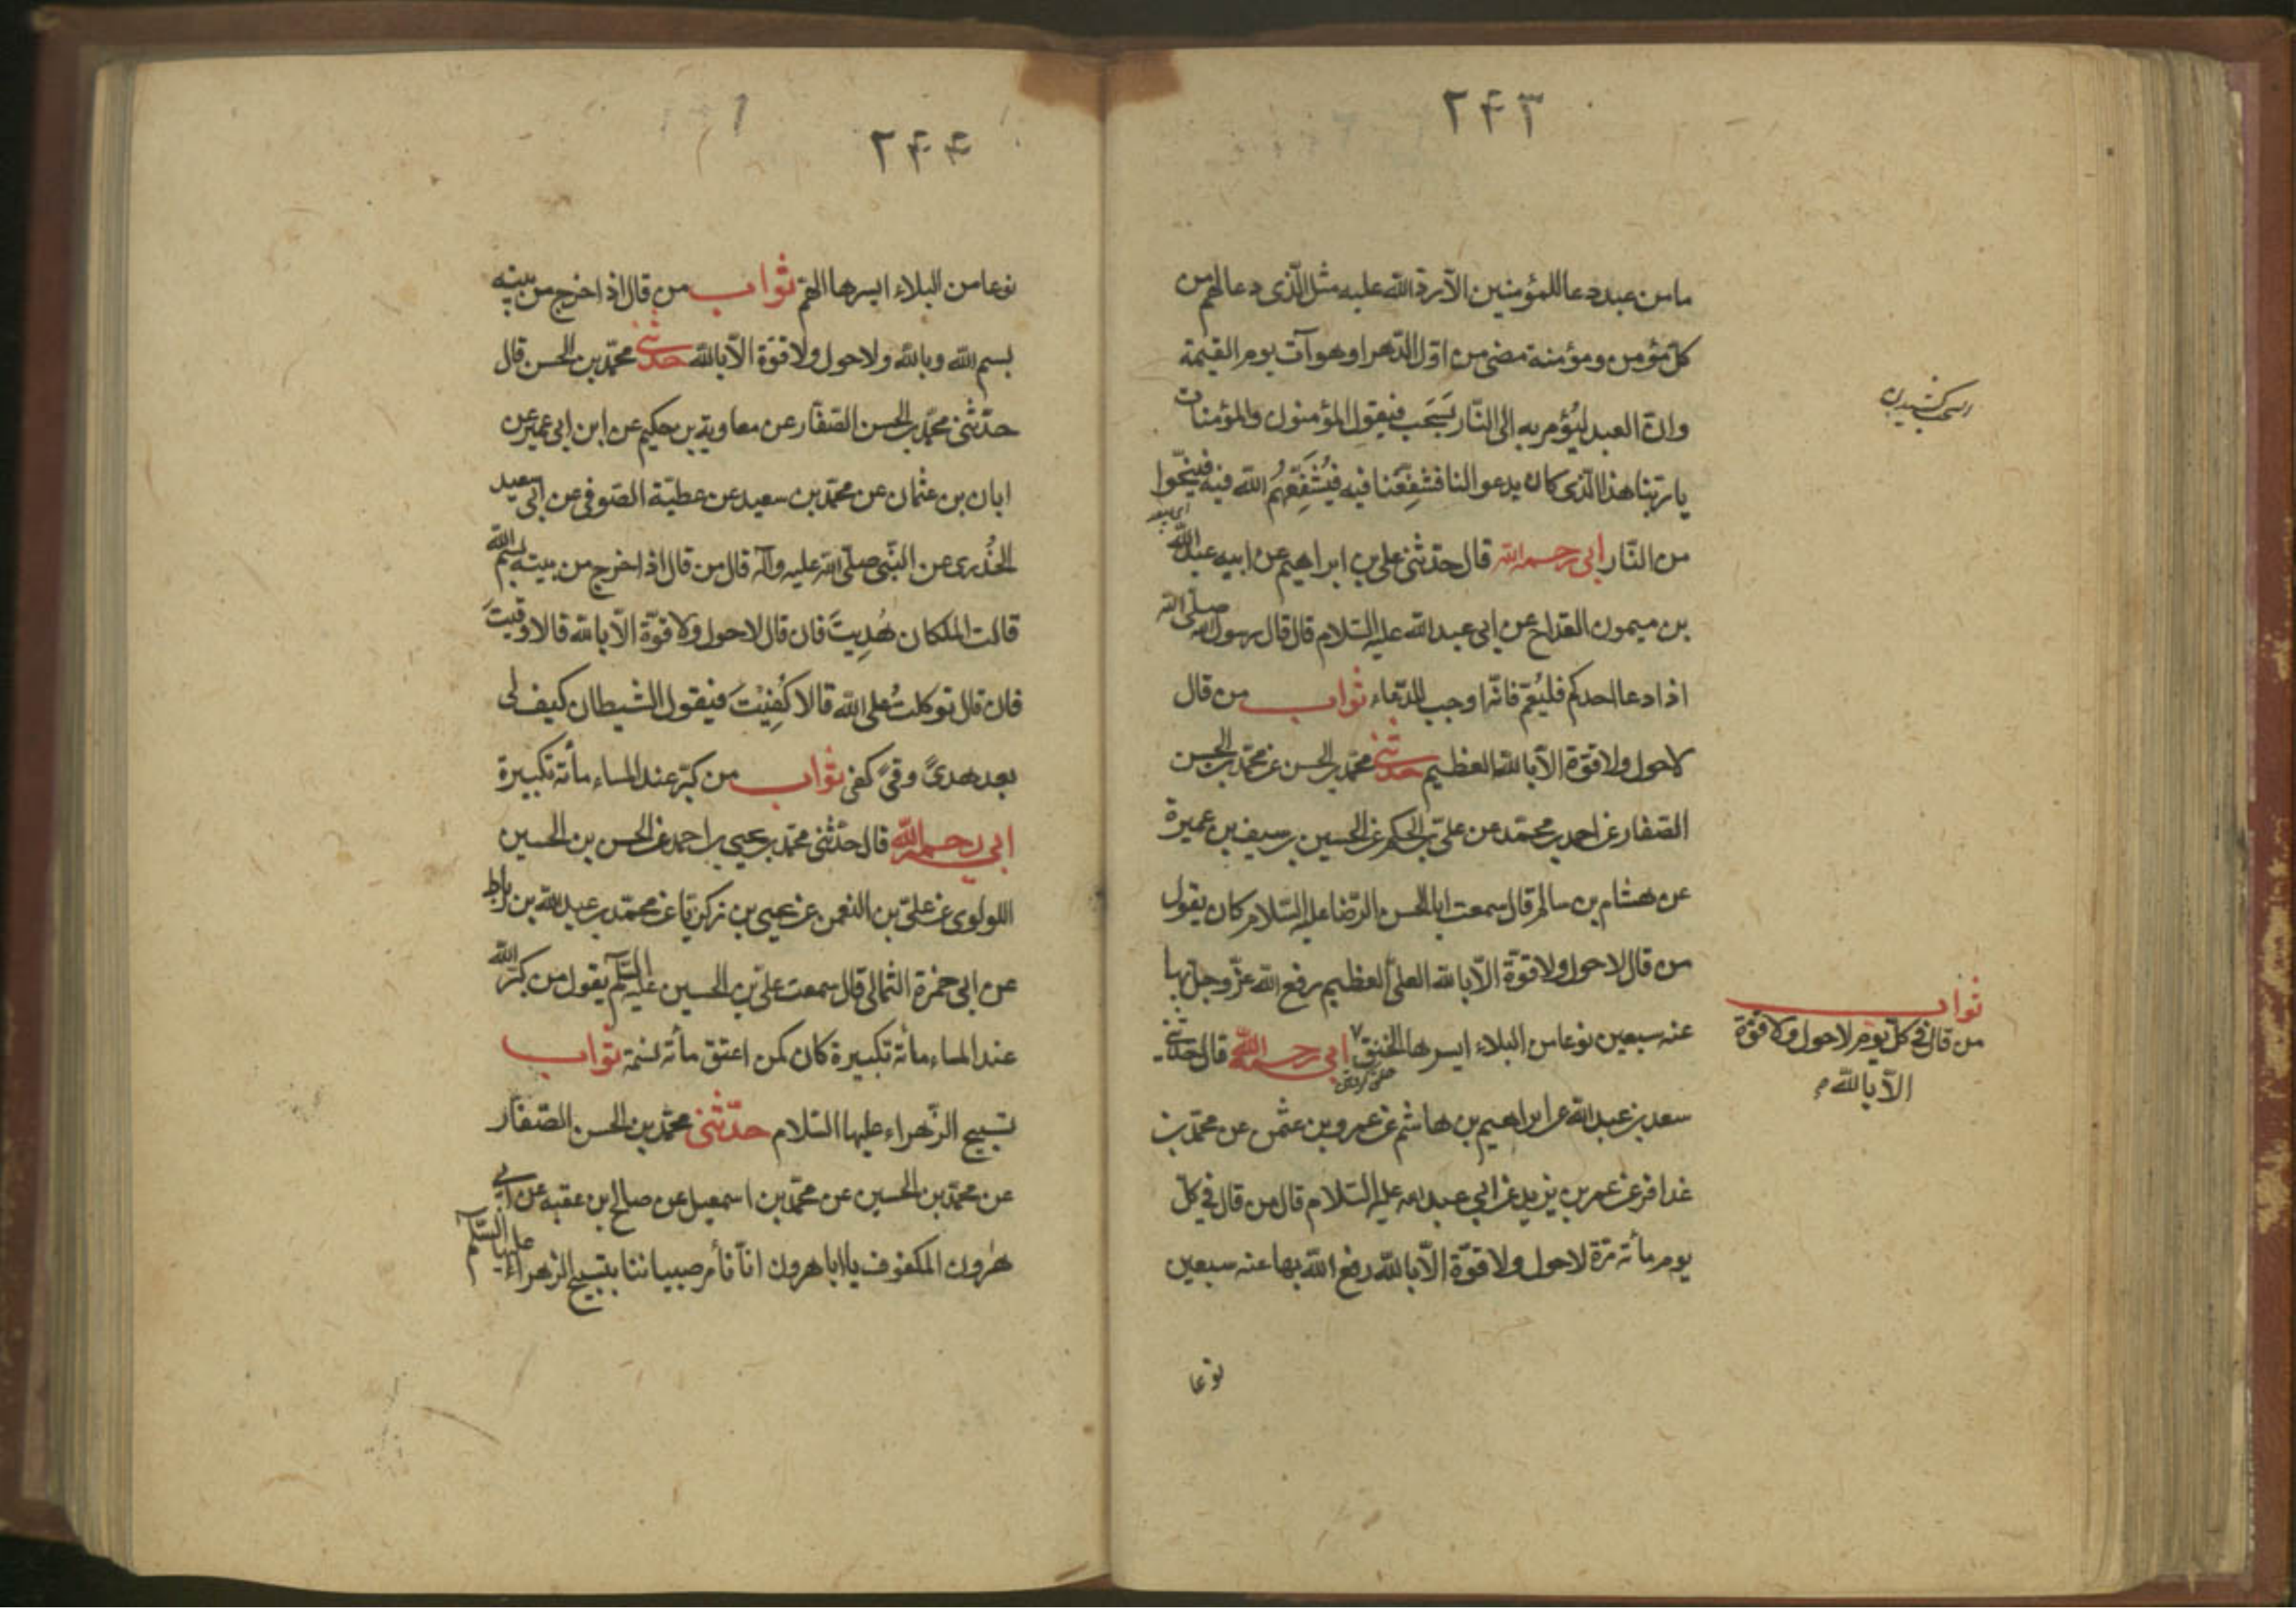 ۲۴۳
ما من عبد دعا للمؤمنین الّا ردّ اللّه علیه مثل الّذی دعا لهم من
کلّ مؤمن و مؤمنة مضی من اوّل الدّهر او هو آت یوم القیمة
و انّ العبد لیُؤمر به الی النّار یَسحَب فیقول المؤمنون والمؤمنات
سحب کشیدن
یا ربّنا هذا الّذی کان یدعو لنا فشفِّعنا فیه فیُشَفِّعُهُم اللّه فیه فینجّوا
من النّار ابی رحمه اللّه قال حدّثنی علی بن ابراهیم عن ابیه عبد اللّه
بن میمون القداح عن ابی عبد اللّه علیه السّلام قال قال رسول اللّه صلّی اللّه
اذا دعا احدکم فلیُعمّ فانّه اوجب للدّعاء ثواب من قال
لاحول ولا قوّة الّا باللّه العظیم حدثنی محمّد بن الحسن عن محمّد بن الحسن
الصّفار عن احمد بن محمّد عن علیّ بن الحکم عن الحسین بن سیف بن عمیرة
عن هشام بن سالم قال سمعت ابا الحسن الرّضا علیه السّلام کان یقول
من قال لا حول ولا قوّة الّا باللّه العلیّ العظیم رفع اللّه عزّ وجلّ بها
عنه سبعین نوعا من البلاء ایسرها الخنق ابی رحمه اللّه قال حدّثنی
ثواب
من قال فی کلّ یوم لا حول ولا قوّة
الّا باللّه م
سعد بن عبد اللّه عن ابراهیم بن هاشم عن عمرو بن عثمن عن محمّد بن
عذافر عن عمر بن یزید عن ابی عبد اللّه علیه السّلام قال من قال فی کلّ
یوم مأته مرّة لاحول ولا قوّة الّا باللّه دفع اللّه بها عنه سبعین
نوعا
۲۴۴
نوعا من البلاء ایسرها الهمّ ثواب من قال اذا خرج من بیته
بسم اللّه و باللّه ولا حول ولا قوّة الّا باللّه حدثنی محمّد بن الحسن قال
حدّثنی محمّد بن الحسن الصّفّار عن معاویة بن حکیم عن ابن ابی عمیر عن
ابان بن عثمان عن محمّد بن سعید عن عطیّة الصّوفی عن ابی سعید
الخُدری عن النّبی صلّی اللّه علیه وآله قال من قال اذا خرج من بیته بسم اللّه
قالت الملکان هُدِیتَ فان قال لاحول ولا قوّة الّا باللّه قالا وقیتَ
فان قال توکلتُ علی اللّه قالا کُفِیْتَ فیقول الشیطان کیف لی
بعد هدیً وقیً کفی ثواب من کبّر عند المساء مأته تکبیرة
ابی رحمه اللّه قال حدّثنی محمّد بن یحیی بن احمد عن الحسن بن الحسین
اللولوی عن علیّ بن النعمن عن یحیی بن زکریّا عن محمّد بن عبد اللّه بن رباط
عن ابی حمزة الثمالی قال سمعت علیّ بن الحسین علیه السّلم یقول من کبّر اللّه
عند المساء مأته تکبیرة کان کمن اعتق مأته نسمة ثواب
تسبیح الزّهراء علیها السّلام حدّثنی محمّد بن الحسن الصّفّار
عن محمّد بن الحسین عن محمّد بن اسمعیل عن صالح بن عقبه عن ابی
هٰرون المکفوف یا ابا هرون انّا نأمر صبیاننا بتسبیح الزهراء علیها السّلم